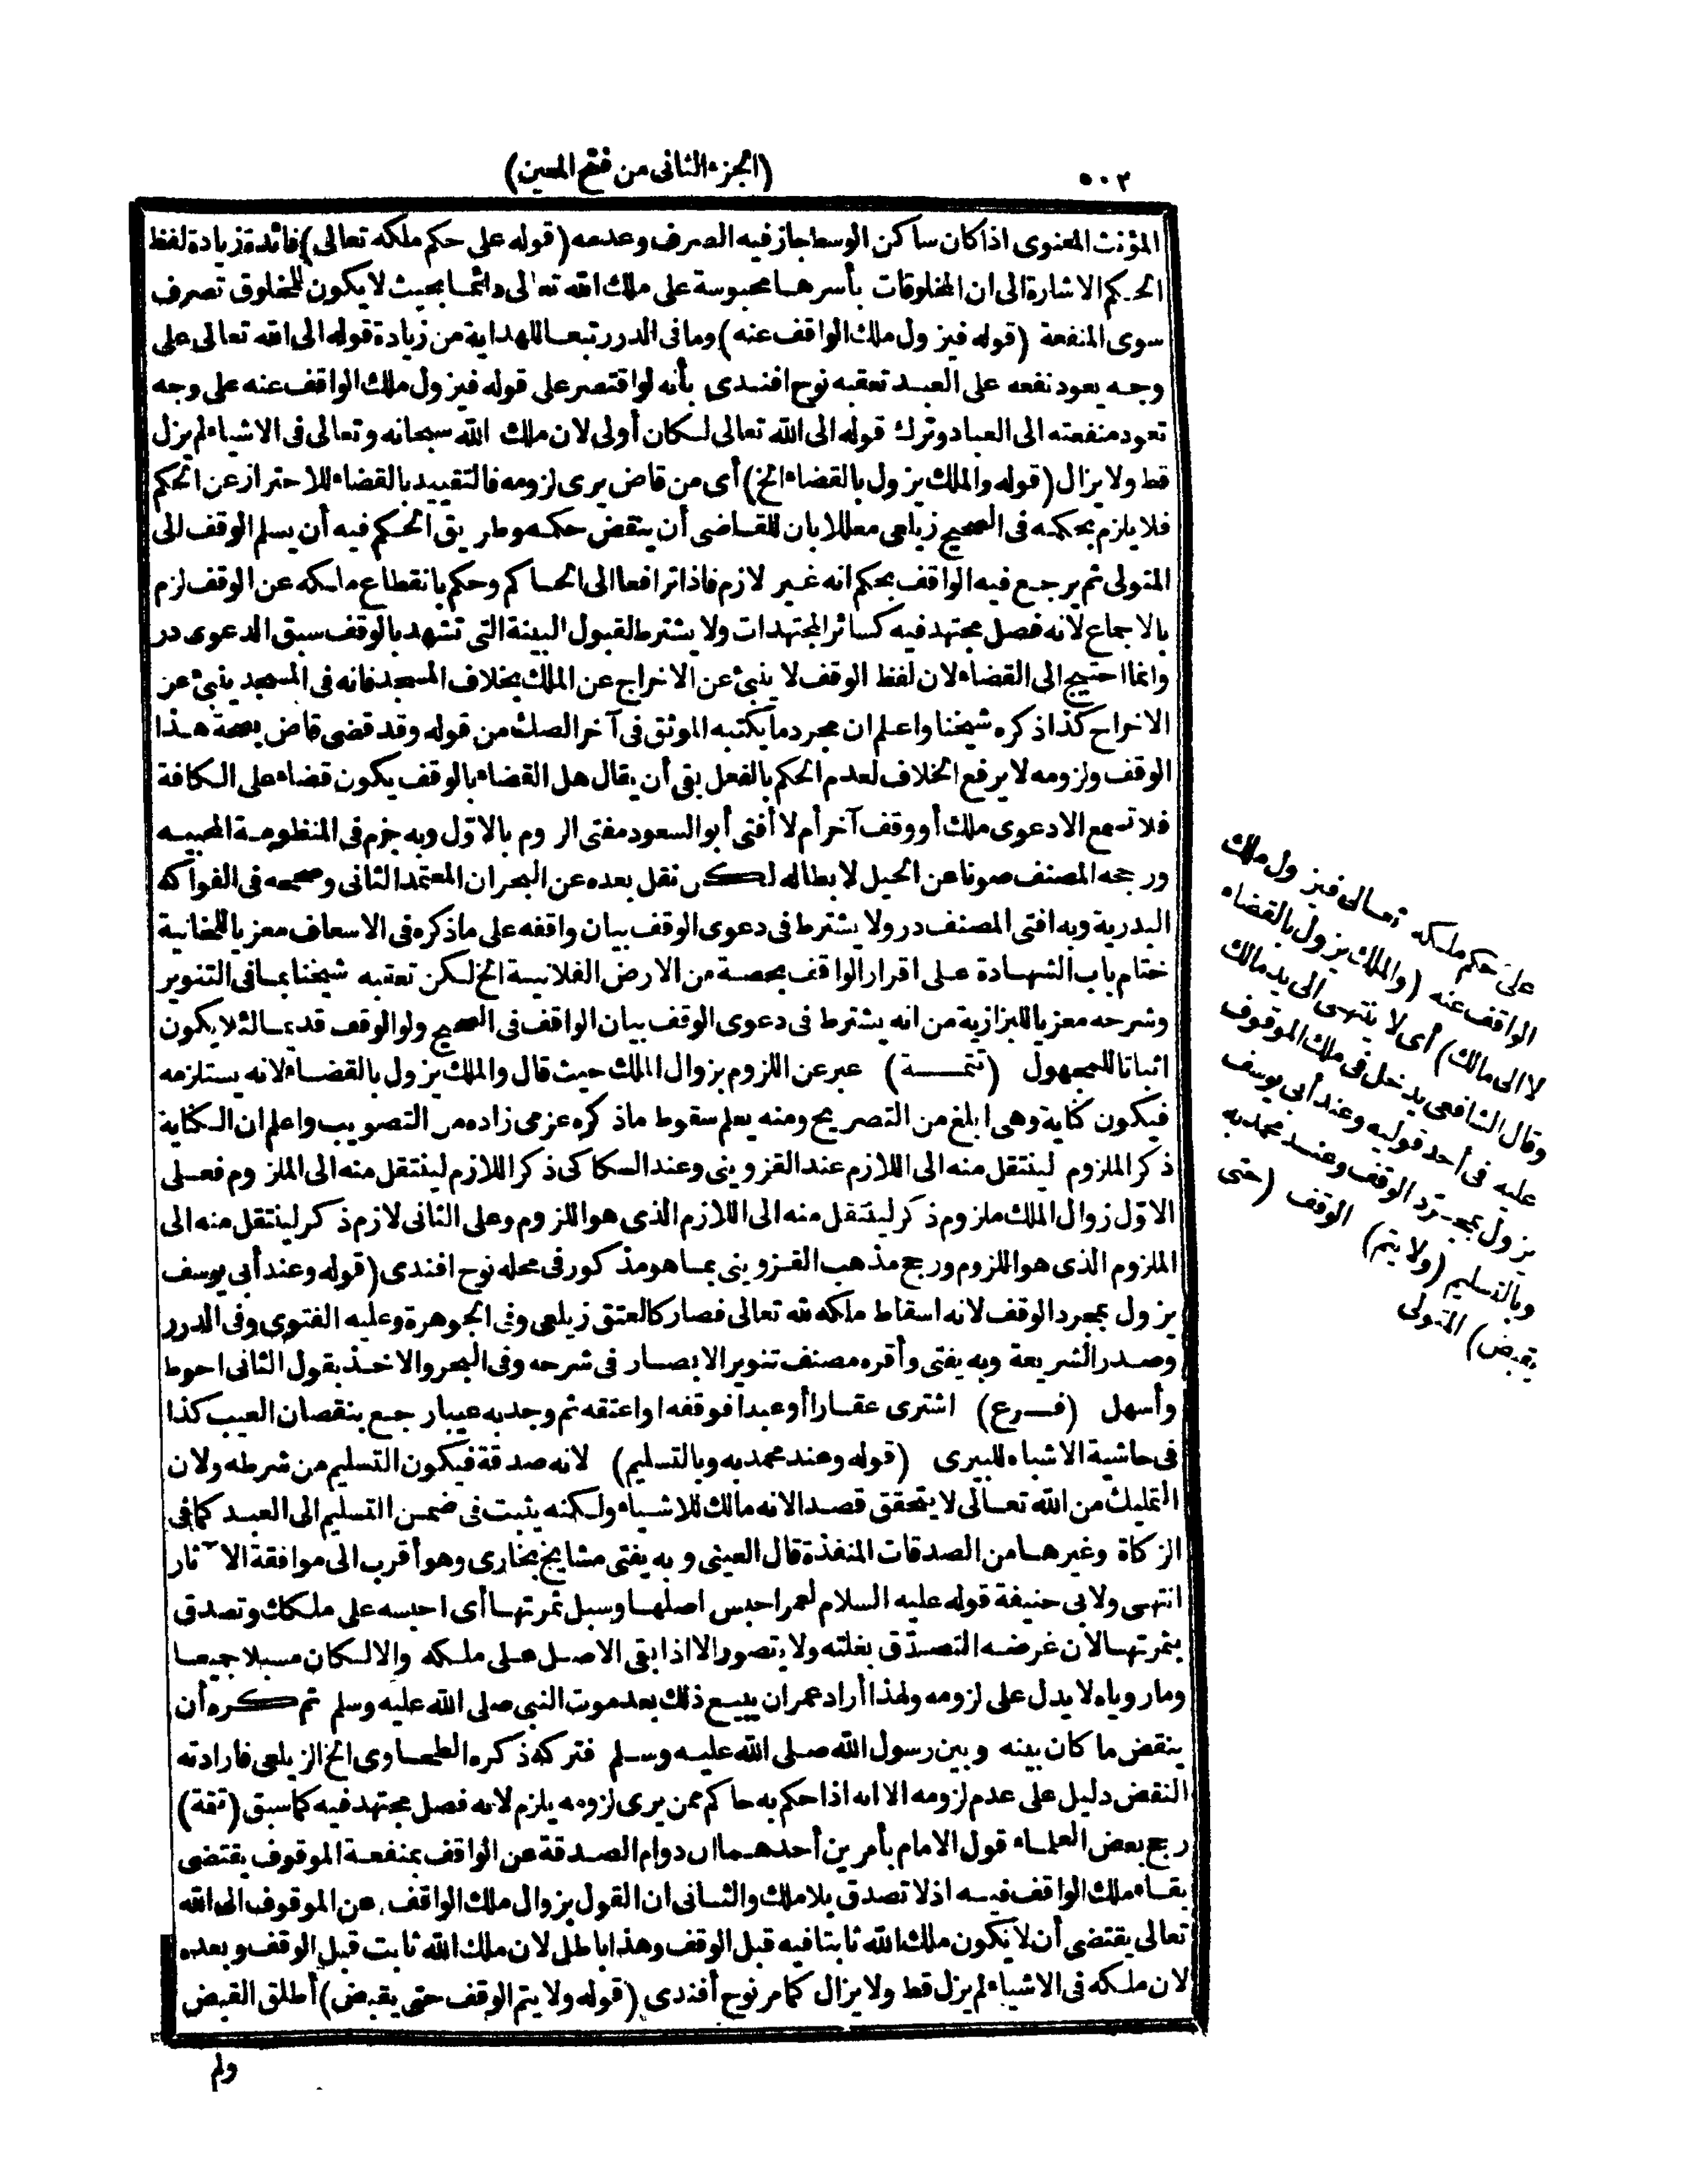 ٥٠٢
(الجزء الثانى من فتح المعين)
المؤنث المعنوى اذا كان ساكن الوسط جاز فيه الصرف وعدمه (قوله على حكم ملكه تعالى) فائدة زيادة لفظ
الحكم الاشارة الى ان المخلوقات بأسرها محبوسة على ملك الله تعالى دائما بحيث لا يكون للمخلوق تصرف
سوى المنفعة (قوله فيزول ملك الواقف عنه) وما فى الدرر تبعا للهداية من زيادة قوله الى الله تعالى على
وجه يعود نفعه على العبد تعقبه نوح افندى بأنه لو اقتصر على قوله فيزول ملك الواقف عنه على وجه
تعود منفعته الى العباد وترك قوله الى الله تعالى لكان أولى لان ملك الله سبحانه وتعالى فى الاشياء لم يزل
قط ولا يزال (قوله والملك يزول بالقضاء الخ) أى من قاض يرى لزومه فالتقييد بالقضاء للاحتراز عن الحكم
فلا يلزم بحكمه فى الصحيح زيلعى معللا بان للقاضى أن ينقض حكمه وطريق الحكم فيه أن يسلم الوقف الى
المتولى ثم يرجع فيه الواقف بحكم انه غير لازم فاذا ترافعا الى الحاكم وحكم بانقطاع ملكه عن الوقف لزم
بالاجماع لانه فصل مجتهد فيه كسائر المجتهدات ولا يشترط لقبول البينة التى تشهد بالوقف سبق الدعوى در
وانما احتيج الى القضاء لان لفظ الوقف لا ينبئ عن الاخراج عن الملك بخلاف المسجد فانه فى المسجد ينبئ عن
الاخراج كذا ذكره شيخنا واعلم ان مجرد ما يكتبه الموثق فى آخر الصك من قوله وقد قضى قاض بصحة هذا
الوقف ولزومه لا يرفع الخلاف لعدم الحكم بالفعل بقى أن يقال هل القضاء بالوقف يكون قضاء على الكافة
فلا تسمع الا دعوى ملك أو وقف آخر أم لا أفتى أبو السعود مفتى الروم بالاول وبه جزم فى المنظومة المحبية
ورجحه المصنف صونا عن الحيل لابطاله لكن نقل بعده عن البحر ان المعتمد الثانى وصححه فى الفواكه
البدرية وبه افتى المصنف در ولا يشترط فى دعوى الوقف بيان واقفه على ما ذكره فى الاسعاف معزيا للخانية
ختام باب الشهادة على اقرار الواقف بحصة من الارض الفلانية الخ لكن تعقبه شيخنا بما فى التنوير
وشرحه معزيا للبزازية من انه يشترط فى دعوى الوقف بيان الواقف فى الصحيح ولو الوقف قديما لئلا يكون
اثباتا للمجهول (تتمـــة) عبر عن اللزوم بزوال الملك حيث قال والملك يزول بالقضاء لانه يستلزمه
فيكون كناية وهى ابلغ من التصريح ومنه يعلم سقوط ما ذكره عزمى زاده من التصويب واعلم ان الكناية
ذكر الملزوم لينتقل منه الى اللازم عند القزوينى وعند السكاكى ذكر اللازم لينتقل منه الى الملزوم فعلى
الاول زوال الملك ملزوم ذكر لينتقل منه الى اللازم الذى هو اللزوم وعلى الثانى لازم ذكر لينتقل منه الى
الملزوم الذى هو اللزوم ورجح مذهب القزوينى بما هو مذكور فى محله نوح افندى (قوله وعند أبى يوسف
يزول بمجرد الوقف لانه اسقاط ملكه لله تعالى فصار كالعتق زيلعى وفى الجوهرة وعليه الفتوى وفى الدرر
وصدر الشريعة وبه يفتى وأقره مصنف تنوير الابصار فى شرحه وفى البحر والاخذ بقول الثانى احوط
وأسهل (فــرع) اشترى عقارا أو عبدا فوقفه او اعتقه ثم وجد به عيبا رجع بنقصان العيب كذا
فى حاشية الاشباه للبيرى (قوله وعند محمد به وبالتسليم) لانه صدقة فيكون التسليم من شرطه ولان
التمليك من الله تعالى لا يتحقق قصدا لانه مالك للاشياء ولكنه يثبت فى ضمن التسليم الى العبد كما فى
الزكاة وغيرها من الصدقات المنفذة قال العينى وبه يفتى مشايخ بخارى وهو أقرب الى موافقة الآثار
انتهى ولابى حنيفة قوله عليه السلام لعمر احبس اصلها وسبل ثمرتها أى احبسه على ملكك وتصدق
بثمرتها لان غرضه التصدّق بغلته ولا يتصور الا اذا بقى الاصل على ملكه والا لكان مسبلا جميعا
وما روياه لا يدل على لزومه ولهذا أراد عمر ان يبيع ذلك بعد موت النبى صلى الله عليه وسلم ثم كره أن
ينقض ما كان بينه وبين رسول الله صلى الله عليه وسلم فتركه ذكره الطحاوى الخ الزيلعى فارادته
النقض دليل على عدم لزومه الا انه اذا حكم به حاكم ممن يرى لزومه يلزم لانه فصل مجتهد فيه كما سبق (تتمة)
رجح بعض العلماء قول الامام بأمرين أحدهما ان دوام الصدقة عن الواقف بمنفعة الموقوف يقتضى
بقاء ملك الواقف فيه اذ لا تصدق بلا ملك والثانى ان القول بزوال ملك الواقف عن الموقوف الى الله
تعالى يقتضى أن لا يكون ملك الله ثابتا فيه قبل الوقف وهذا باطل لان ملك الله ثابت قبل الوقف وبعده
لان ملكه فى الاشياء لم يزل قط ولا يزال كما مر نوح أفندى (قوله ولا يتم الوقف حتى يقبض) أطلق القبض
ولم
على حكم ملكه تعالى فيزول ملك
الواقف عنه (والملك يزول بالقضاء
لا الى مالك) أى لا ينتهى الى يد مالك
وقال الشافعى يدخل فى ملك الموقوف
عليه فى أحد قوليه وعند أبى يوسف
يزول بمجرّد الوقف وعند محمد به
وبالتسليم (ولا يتم) الوقف (حتى
يقبض) المتولى